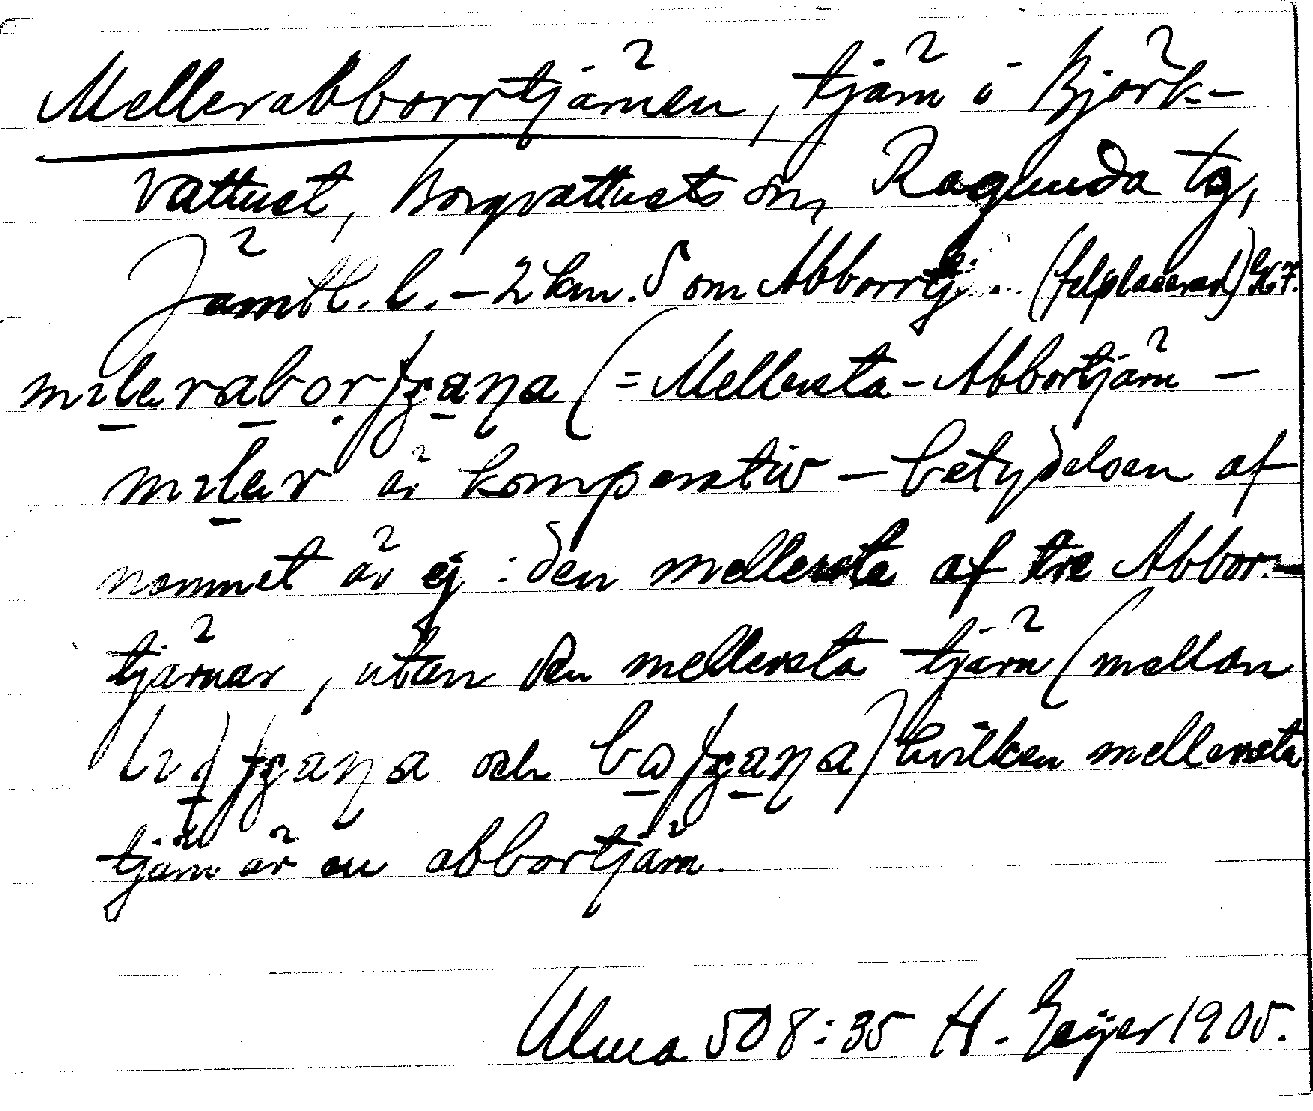 Mellerabborrtjärnen, tjärn i Björk-
vattnet, Borgvattnets sn, Ragunda tg,
Jämtl. l. – 2 km. S om Abborrtj. (felplacerad) GK 7.
(= Mellersta-Abbortjärn –
är komparativ – betydelsen af
namnet är ej : den mellersta af tre Abbor-
tjärnar, utan den mellersta tjärn (mellan
och ) hvilken mellersta
tjärn är en abbortjärn.
Ulma 508:35 H. Geijer 1905.